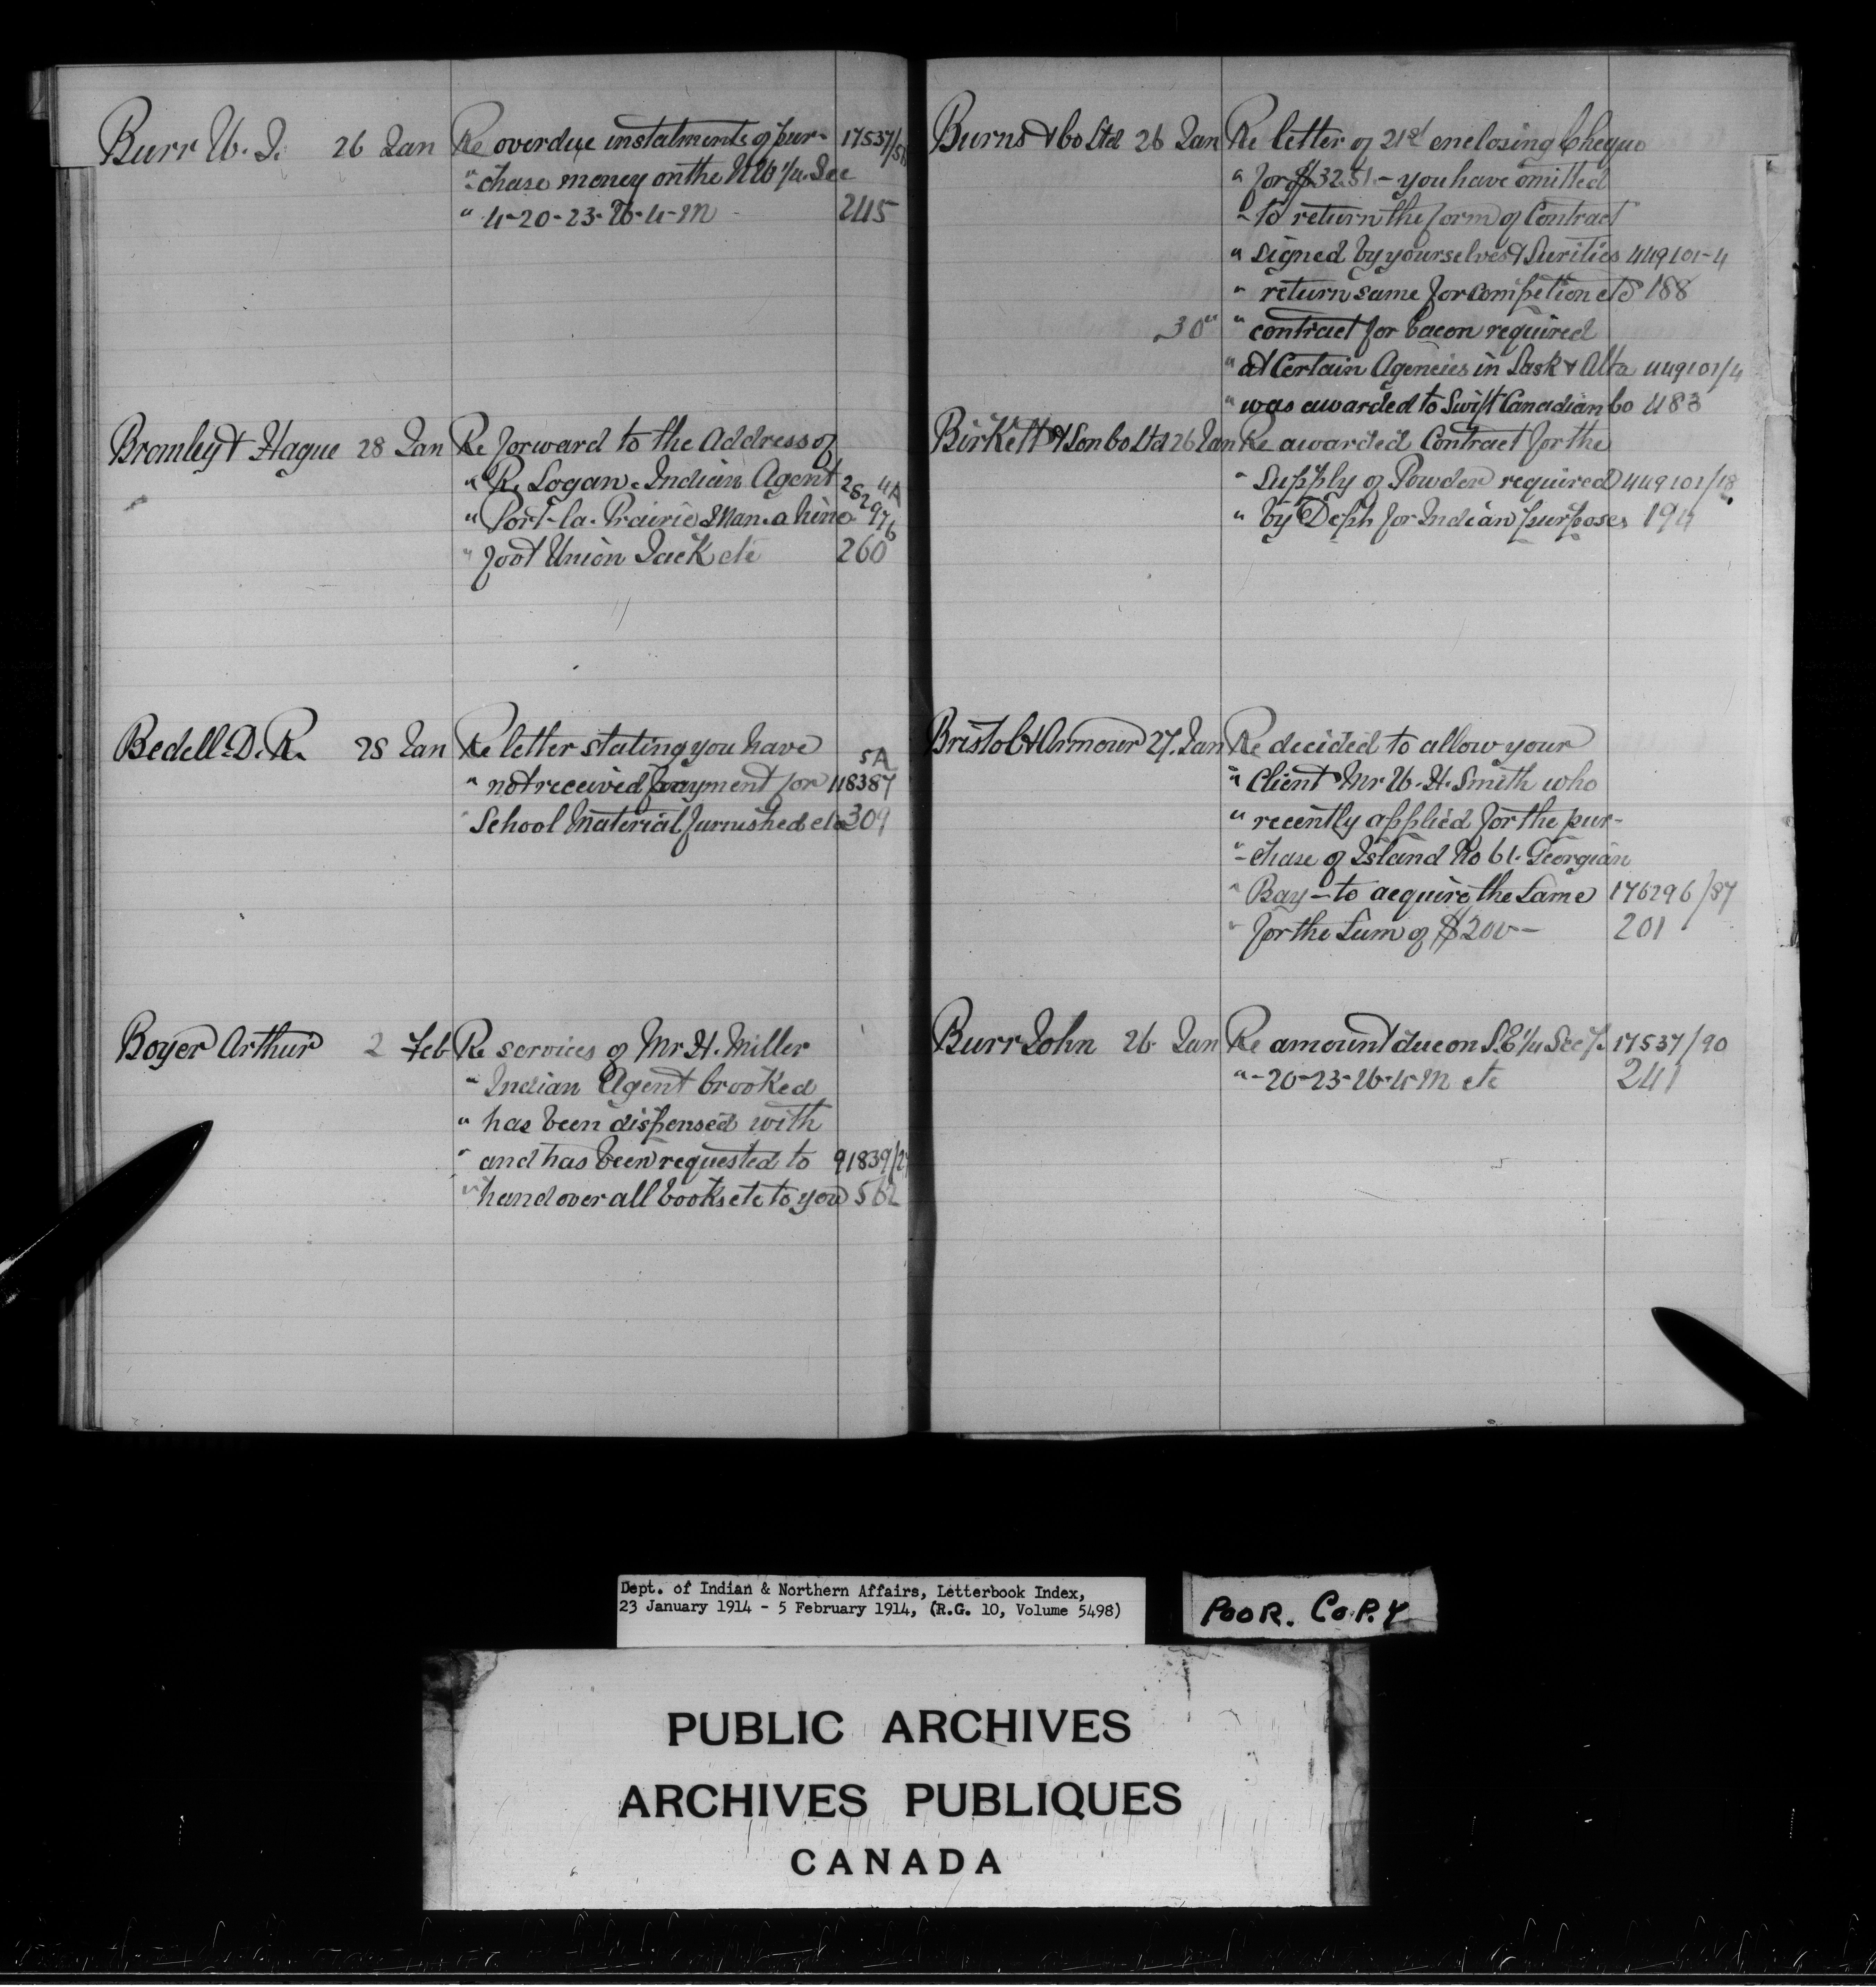 Burr W. J. 26 Jan Re overdue instalments of pur- 17537/
" chase money on the N W 1/4 Sec
" 4-20-23-W-4-M - 245
Bromley & Hague 28 Jan Re forward to the Address of
" R. Logan. Indian Agent 4A
" Port-la-Prairie Man. a nine 262976
" foot Union Jack etc 260
Bedell. D. R. 28 Jan Re letter stating you have 5A
" not received payment for 118387
" School Material furnished etc 309
Boyer Arthur 2 Feb Re services of Mr H. Miller
" Indian Agent Crooked
" has been dispensed with
" and has been requested to 91839/
" hand over all books etc to you 562
Burns & Co Ltd 26 Jan Re letter of 21st enclosing Cheque
" for $3251 - you have omitted
" to return the form of Contract
" signed by yourselves & Surities 449101-4
" return same for Compeltion etc 188
30 " " contract for bacon required
" at Certain Agencies in Sask & Alta 449101/4
" was awarded to Swift Canadian Co 483
Birkett & Son Co Ltd 26 Jan Re awarded Contract for the
" Supply of Powder required 449101/18
" by Dept for Indian purposes 194
Bristol & Armour 27. Jan Re decided to allow your
" Client Mr W. H. Smith who
" recently applied for the pur-
" chase of Island No 61. Georgian
" Bay - to acquire the same 176296/87
" for the Sum of $200- 201
Burr John 26 Jan Re amount due on S.E 1/4 Sec 7. 17537/90
" -20-23-W-4-M etc 241
Dept. of Indian & Northern Affairs, Letterbook Index,
23 January 1914 - 5 February 1914, (R.G. 10, Volume 5498)
POOR. COPY
PUBLIC ARCHIVES
ARCHIVES PUBLIQUES
CANADA